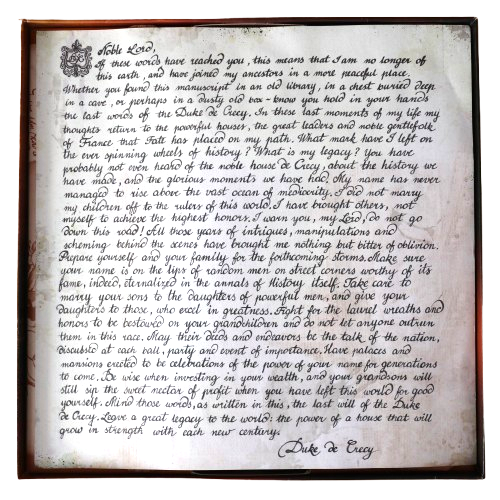 Noble Lord,
If these words have reached you, this means that I am no longer of
this earth, and have joined my ancestors in a more peaceful place.
Whether you found this manuscript in an old library, in a chest buried deep
in a cave, or perhaps in a dusty old box - know you hold in your hands
the last words of the Duke de Crecy. In these last moments of my life my
thoughts return to the powerful houses, the great leaders and noble gentlefolk
of France that Fate has placed on my path. What mark have I left on
the ever spinning wheels of history? What is my legacy? You have
probably not even heard of the noble house de Crecy, about the history we
have made, and the glorious moments we have had. My name has never
managed to rise above the vast ocean of mediocrity. I did not marry
my children off to the rulers of this world. I have brought others, not
myself to achieve the highest honors. I warn you, my Lord, do not go
down this road! All those years of intrigues, manipulations and
scheming behind the scenes have brought me nothing but bitter of oblivion.
Prepare yourself and your family for the forthcoming storms. Make sure
your name is on the lips of random men on street corners worthy of its
fame, indeed, eternalized in the annals of History itself. Take care to
marry your sons to the daughters of powerful men, and give your
daughters to those, who excel in greatness. Fight for the laurel wreaths and
honors to be bestowed on your grandchildren and do not let anyone outrun
them in this race. May their deeds and endeavors be the talk of the nation,
discussed at each ball, party and event of importance. Have palaces and
mansions erected to be celebrations of the power of your name for generations
to come. Be wise when investing in your wealth, and your grandsons will
still sip the sweet nectar of profit when you have left this world for good
yourself. Mind those words, as written in this, the last will of the Duke
de Crecy. Leave a great legacy to the world: the power of a house that will
grow in strength with each new century.
Duke de Crecy